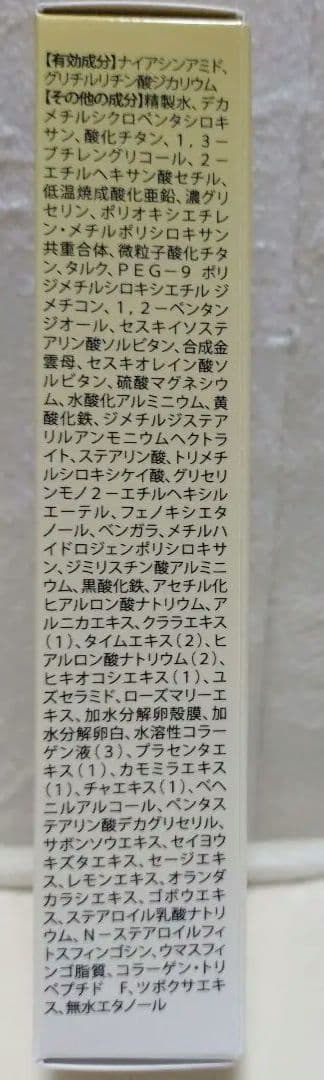 【有効成分】ナイアシンアミド、
グリチルリチン酸ジカリウム
【その他の成分】精製水、デカ
メチルシクロペンタシロキ
サン、酸化チタン、1，3－
ブチレングリコール、2－
エチルヘキサン酸セチル、
低温焼成酸化亜鉛、濃グリ
セリン、ポリオキシエチレ
ン・メチルポリシロキサン
共重合体、微粒子酸化チタ
ン、タルク、PEG－9 ポリ
ジメチルシロキシエチル ジ
メチコン、1，2－ペンタン
ジオール、セスキイソステ
アリン酸ソルビタン、合成金
雲母、セスキオレイン酸ソ
ルビタン、硫酸マグネシウ
ム、水酸化アルミニウム、黄
酸化鉄、ジメチルジステア
リルアンモニウムヘクトラ
イト、ステアリン酸、トリメチ
ルシロキシケイ酸、グリセリ
ンモノ2－エチルヘキシル
エーテル、フェノキシエタ
ノール、ベンガラ、メチルハ
イドロジェンポリシロキサ
ン、ジミリスチン酸アルミニ
ウム、黒酸化鉄、アセチル化
ヒアルロン酸ナトリウム、ア
ルニカエキス、クララエキス
（1）、タイムエキス（2）、ヒ
アルロン酸ナトリウム（2）、
ヒキオコシエキス（1）、ユ
ズセラミド、ローズマリーエ
キス、加水分解卵殻膜、加
水分解卵白、水溶性コラー
ゲン液（3）、プラセンタエ
キス（1）、カモミラエキス
（1）、チャエキス（1）、ベヘ
ニルアルコール、ペンタス
テアリン酸デカグリセリル、
サボンソウエキス、セイヨウ
キズタエキス、セージエキ
ス、レモンエキス、オランダ
カラシエキス、ゴボウエキ
ス、ステアロイル乳酸ナトリ
ウム、N－ステアロイルフィ
トスフィンゴシン、ウマスフィ
ンゴ脂質、コラーゲン・トリ
ペプチド F、ツボクサエキ
ス、無水エタノール